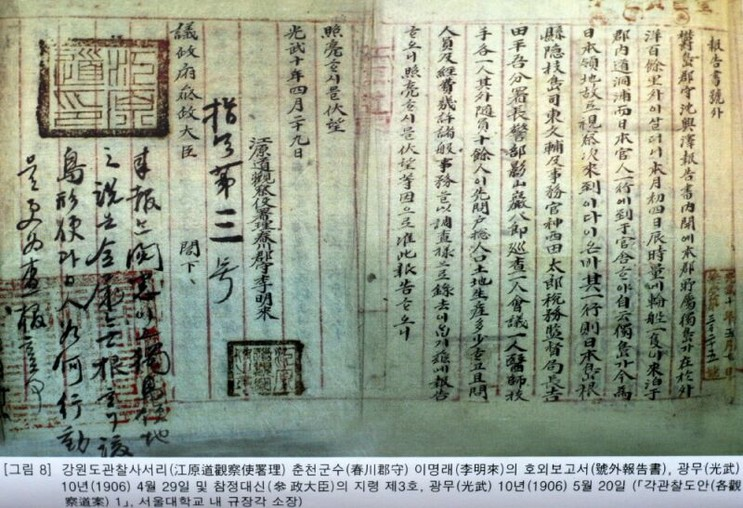 報告書號外
欝島郡守沈興澤報告書內開에本郡所屬獨島가在於外
洋百餘里外이살더니本月初四日辰時量에輪船一隻이來泊于
郡內道洞浦而日本官人一行에到于官舍ᄒᆞ야自云獨島가今爲
日本領地故로視察次來到이다이온바其一行則日本島根
縣隱枝島司東文輔及事務官神西田太郎稅務監督局長吉
田平吾分署長警部影山巖八郎巡查一人會議一人醫師技
手各一人其外隨員十餘人이先問戶摠人口土地生産多少ᄒᆞ고且問
人員及經費幾許諸般事務을以調査樣으로錄去이ᄋᆞᆸ기玆에報告
ᄒᆞ오니照亮ᄒᆞ시믈伏望等因으로准此報告ᄒᆞ오니
照亮ᄒᆞ시믈伏望
光武十年四月二十九日
江原道觀察使署理春川郡守李明來
議政府參政大臣 閣下
指令第三号
來報는閱悉이고獨島領地
之說은全屬無根ᄒᆞ나該
島形便과日人如何行動
[그림 8] 강원도관찰사서리(江原道觀察使署理) 춘천군수(春川郡守) 이명래(李明來)의 호외보고서(號外報告書), 광무(光武)
10년(1906) 4월 29일 및 참정대신(參政大臣)의 지령 제3호, 광무(光武) 10년(1906) 5월 20일 (「각관찰도안(各觀
察道案) 1」, 서울대학교 내 규장각 소장)